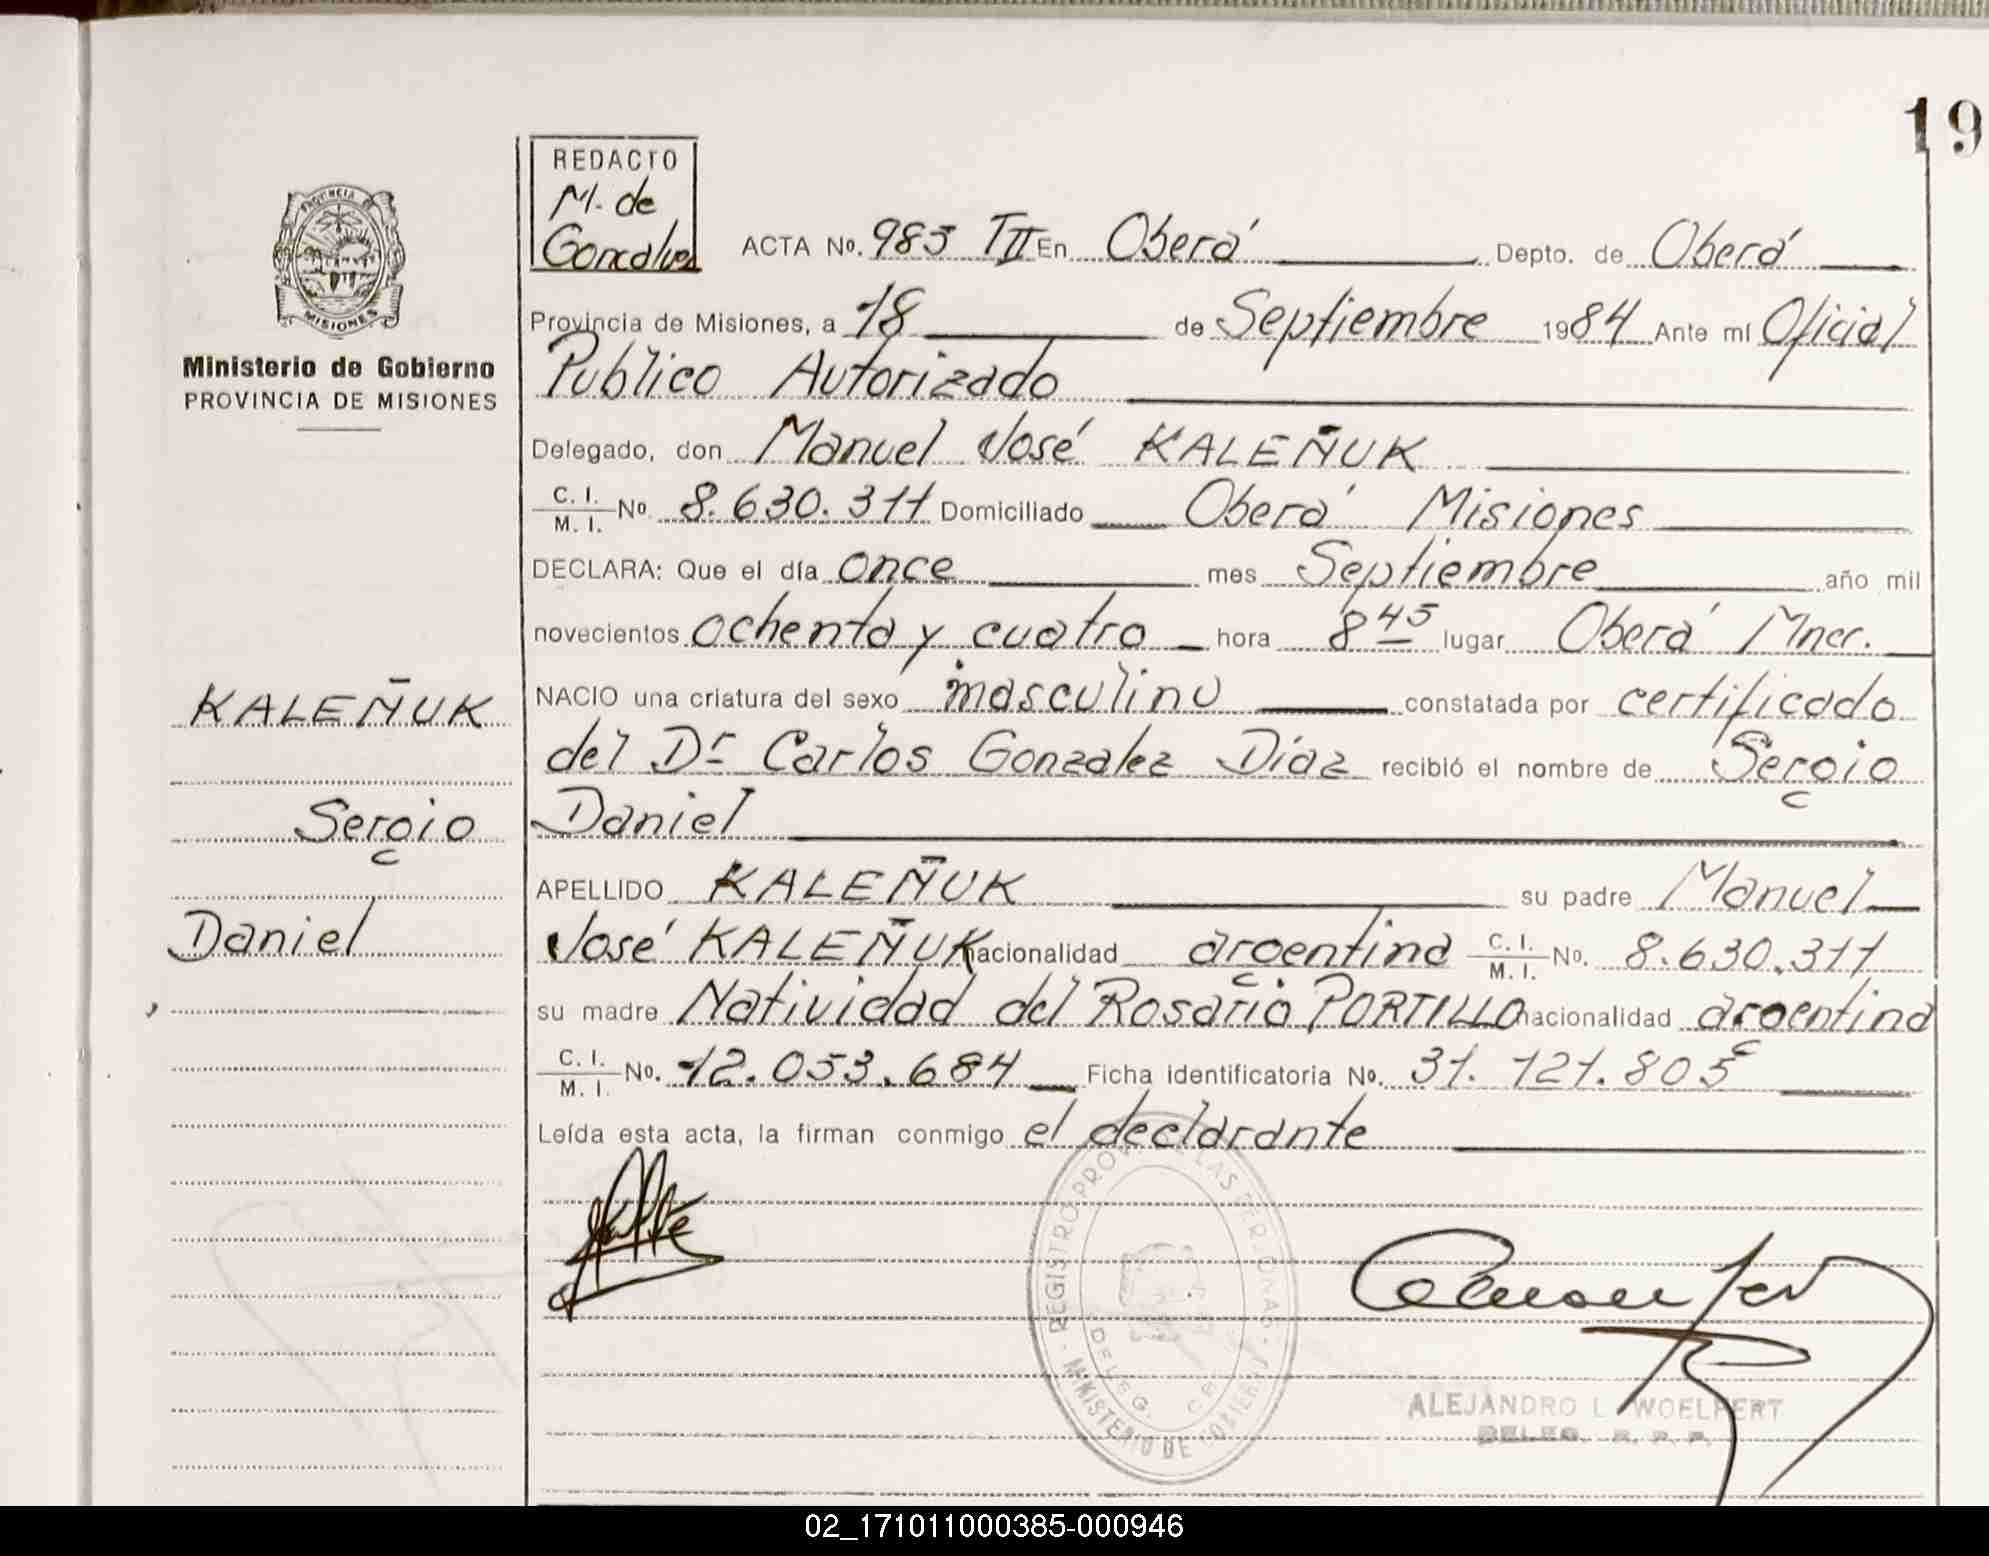 19
PROVINCIA DE
MISIONES
Ministerio de Gobierno
PROVINCIA DE MISIONES
REDACTO
M. de
Goncalves
ACTA No. 985 TII En Oberá Depto. de Oberá
Provincia de Misiones, a 18 de Septiembre 1984 Ante mí Oficial
Público Autorizado
Delegado, don Manuel José KALEÑUK
C. I.
M. I. No. 8.630.311 Domiciliado Oberá Misiones
DECLARA: Que el día once mes Septiembre año mil
novecientos ochenta y cuatro hora 8 45 lugar Oberá Mnes.
KALEÑUK
NACIO una criatura del sexo masculino constatada por certificado
del Dr Carlos Gonzalez Díaz recibió el nombre de Sergio
Sergio
Daniel
APELLIDO KALEÑUK su padre Manuel
Daniel
José KALEÑUK nacionalidad argentina C. I.
M. I. No. 8.630.311
su madre Natividad del Rosario PORTILLO nacionalidad argentina
C. I.
M. I. No. 12.053.684 Ficha identificatoria No. 31.121.805
Leída esta acta, la firman conmigo el declarante
REGISTRO PROV. DE LAS PERSONAS
MINISTERIO DE GOBIERNO
DELEG.
ALEJANDRO L. WOELFERT
DELEG. R. P. P.
02_171011000385-000946